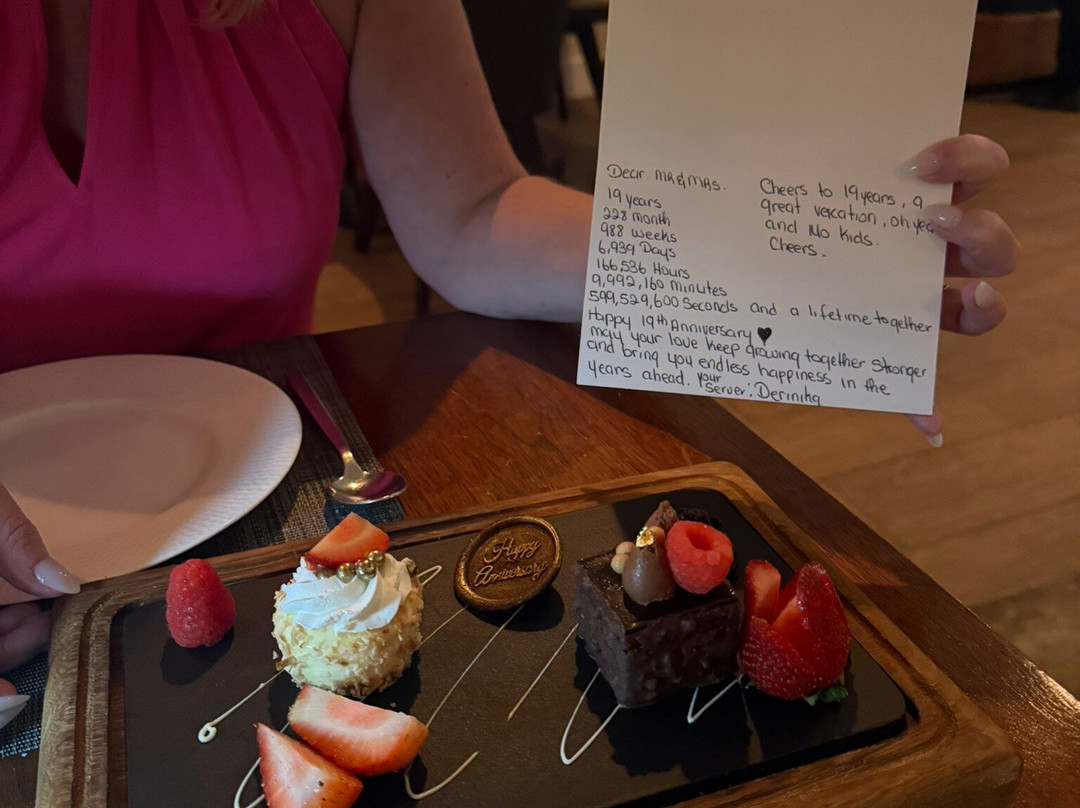 Dear MR & MRS.
19 years
228 month
988 weeks
6,939 Days
166,536 Hours
9,992,160 minutes
599,529,600 Seconds and a lifetime together
Happy 19th Anniversary ♥
may your love keep growing together stronger
and bring you endless happiness in the
years ahead. your
Server: Derinika
Cheers to 19 years, a
great vexcation, oh yea
and No Kids.
Cheers.
Happy
Anniversary